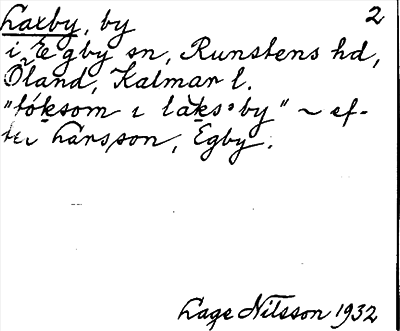 Laxby, by 2
i Egby sn, Runstens hd,
Öland, Kalmar l.
"tóksom i láks by" ~ ef-
ter Larsson, Egby.
Lage Nilsson 1932